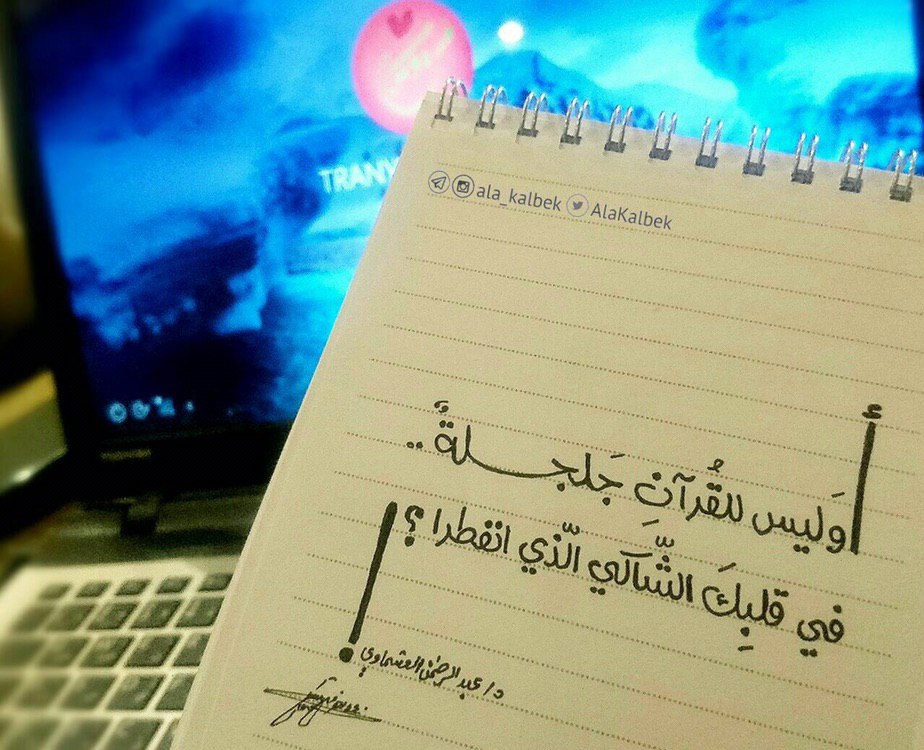 TRANY
ala_kalbek AlaKalbek
أوَليس للقُرآنِ جَلجلةٌ..
في قلبِكَ الشّاكي الّذي انفطرا ؟!
د/عبدالرحمن العشماوي